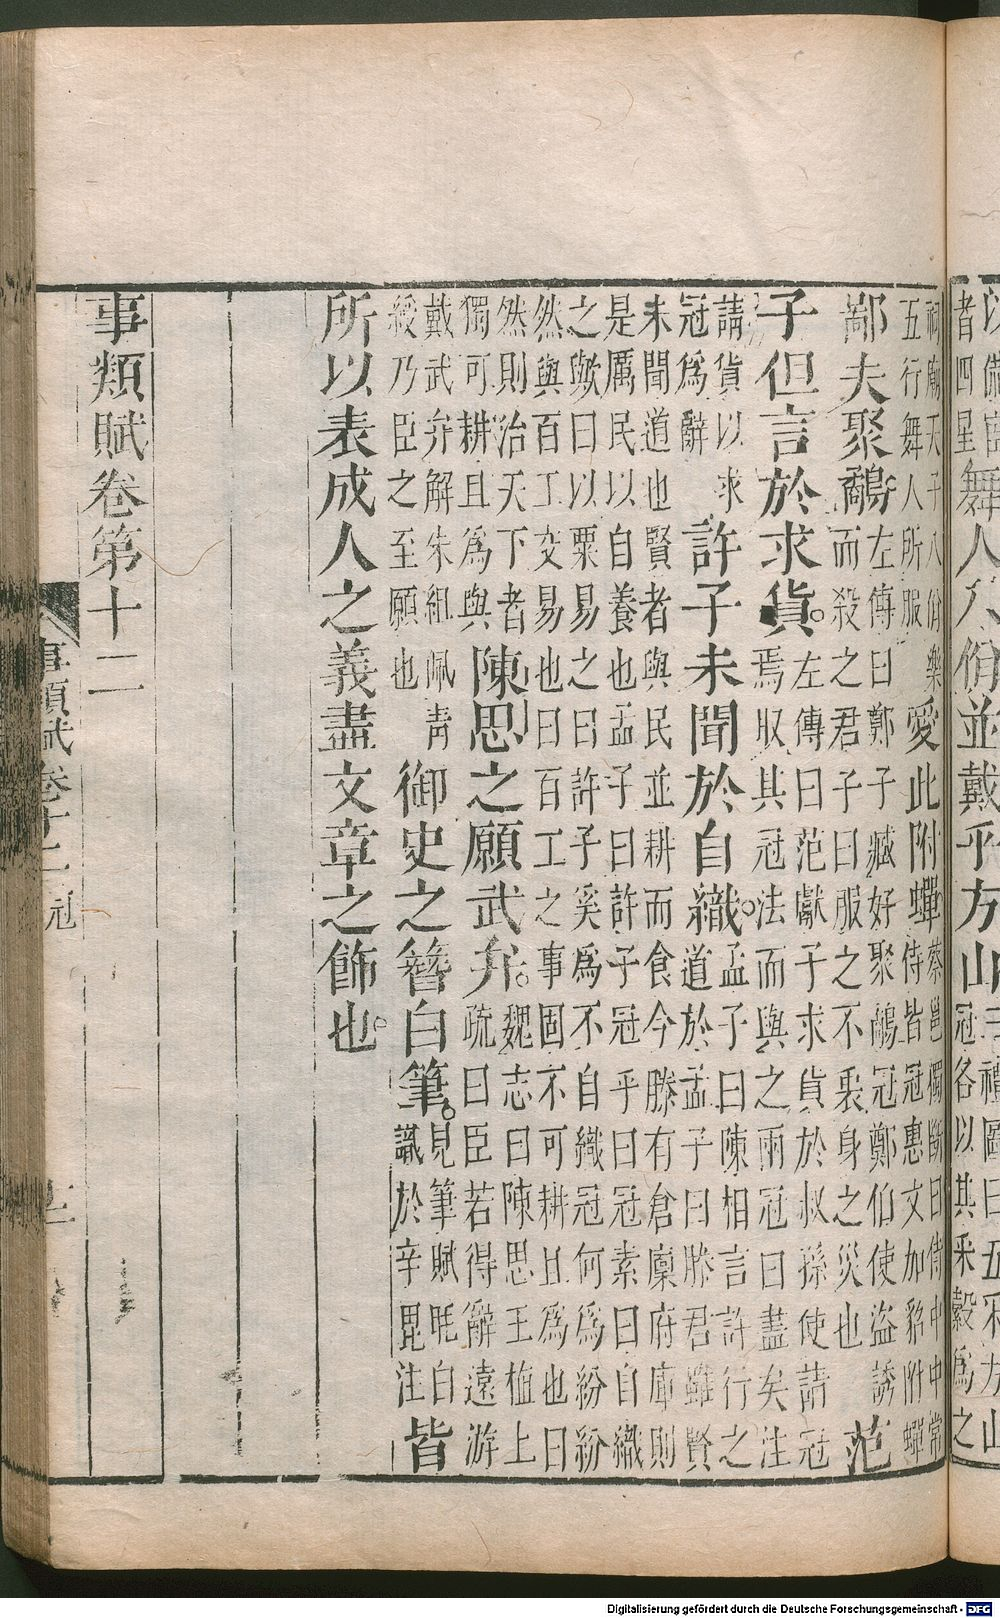 以備官三禮圖曰五采方山
者四星舞人八佾並戴乎方山冠各以其采縠為之
祠廟天子八佾樂
五行舞人所服
愛此附蟬
蔡邕獨斷曰侍中中常
侍皆冠惠文加貂附蟬
鄙夫聚鷸
左傳曰鄭子臧好聚鷸冠鄭伯使盜誘
而殺之君子曰服之不衷身之災也
范
子但言於求貨。
左傳曰范獻子求貨於叔孫使請冠
焉取其冠法而與之兩冠曰盡矣注
請貨以求
冠為辭
許子未聞於自織。
孟子曰陳相言許行之
道於孟子曰滕君雖賢
未聞道也賢者與民並耕而食今滕有倉廩府庫則
是厲民以自養也孟子曰許子冠乎曰冠素曰自織
之歟曰以粟易之曰許子奚為不自織冠何為紛紛
然與百工交易也曰百工之事固不可耕且為也曰
然則治天下者
獨可耕且為與
陳思之願武弁。
魏志曰陳思王植上
疏曰臣若得辭遠游
戴武弁解朱組佩青
綬乃臣之至願也
御史之簪白筆。
見筆賦眊白
識於辛毘注
皆
所以表成人之義盡文章之飾也。
事類賦卷第十二
事類賦卷十二 冠
Digitalisierung gefördert durch die Deutsche Forschungsgemeinschaft - DFG